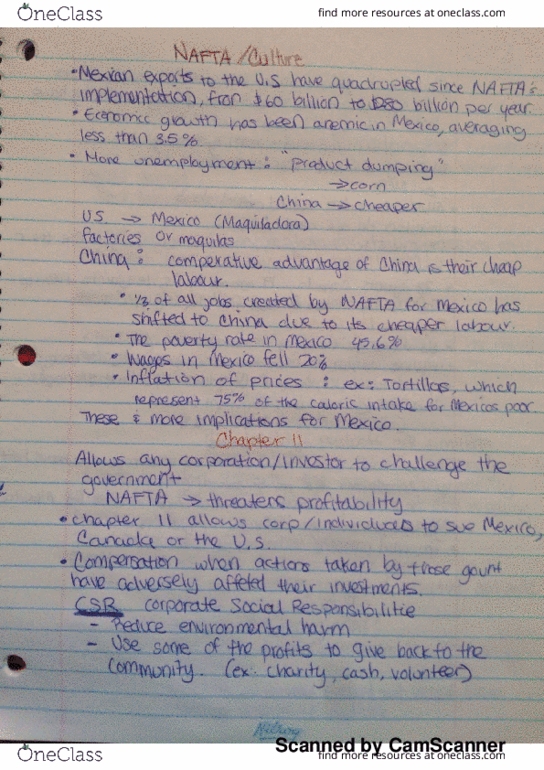 OneClass
find more resources at oneclass.com
NAFTA/Culture
• Mexian exports to the U.S have quadrupled since NAFTA's
implementation, from $60 billion to $280 billion per year.
• Economic growth has been anemic in Mexico, averaging
less than 3.5%.
• More unemployment: "product dumping"
→ corn
China → cheaper
US → Mexico (Maquiladora)
factories or maquilas
China: comperative advantage of China is their cheap
labour.
• 1/3 of all jobs created by NAFTA for Mexico has
shifted to China due to its cheaper labour.
• The poverty rate in Mexico 45.6%
• Wages in Mexico fell 20%
• Inflation of prices: ex: Tortillas, which
represent 75% of the caloric intake for Mexicos poor.
These & more implications for Mexico.
Chapter 11
Allows any corporation/investor to challenge the
government
NAFTA → threatens profitability
• chapter 11 allows corp/individuals to sue Mexico,
Canada or the U.S.
• Compensation when actions taken by those gount
have adversely affeted their investments.
CSR corporate Social Responsibilitie
- Reduce environmental harm
- Use some of the profits to give back to the
community. (ex. charity, cash, volunteer)
Hilroy
Scanned by CamScanner
OneClass
find more resources at oneclass.com